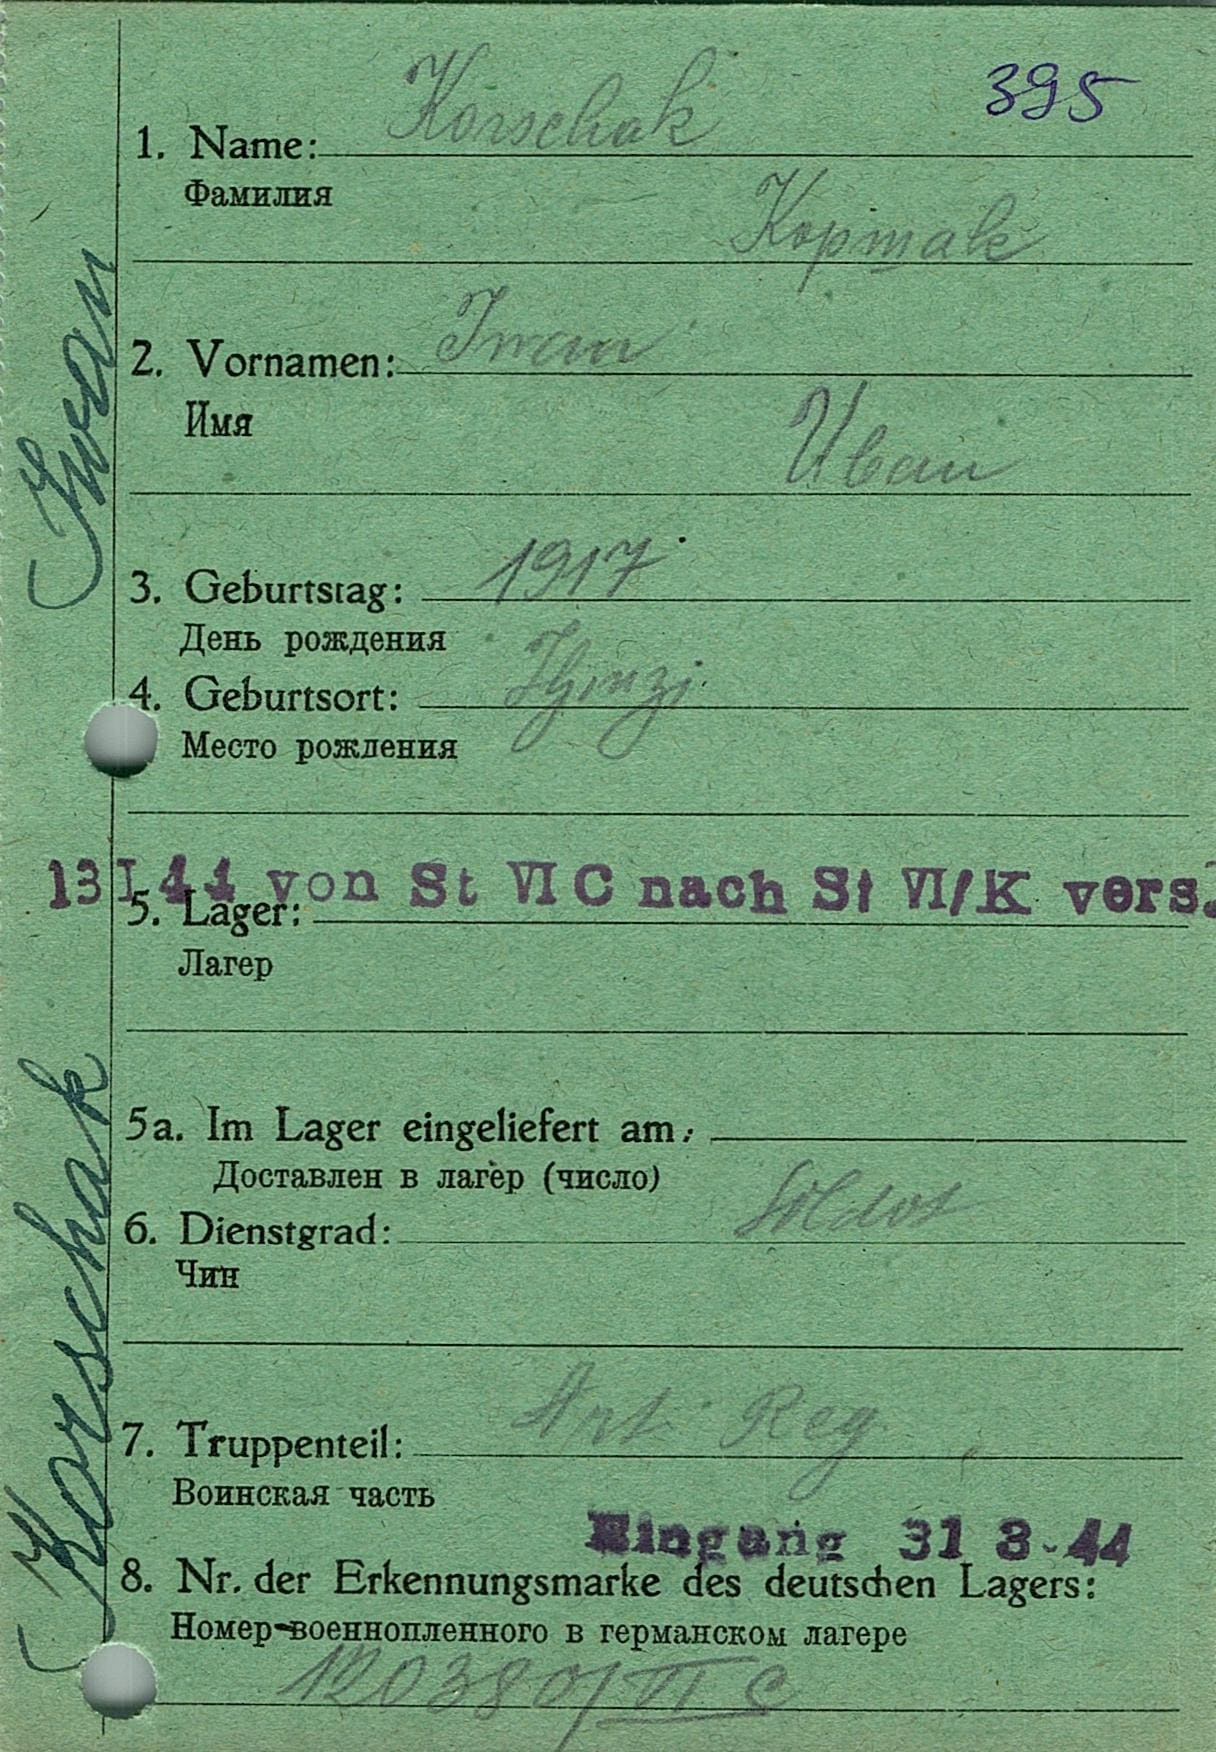 395
1. Name: Korschak
Фамилия
Коршак
2. Vornamen: Iwan
Имя
Иван
3. Geburtstag: 1917
День рождения
4. Geburtsort:
Место рождения
13 I 44 von St VI C nach St VI/K vers.
5. Lager:
Лагер
5a. Im Lager eingeliefert am:
Доставлен в лагер (число)
6. Dienstgrad: Soldat
Чин
7. Truppenteil: Art. Reg
Воинская часть
Eingang 31 3.44
8. Nr. der Erkennungsmarke des deutschen Lagers:
Номер военнопленного в германском лагере
120380/VI C
Korschak Iwan